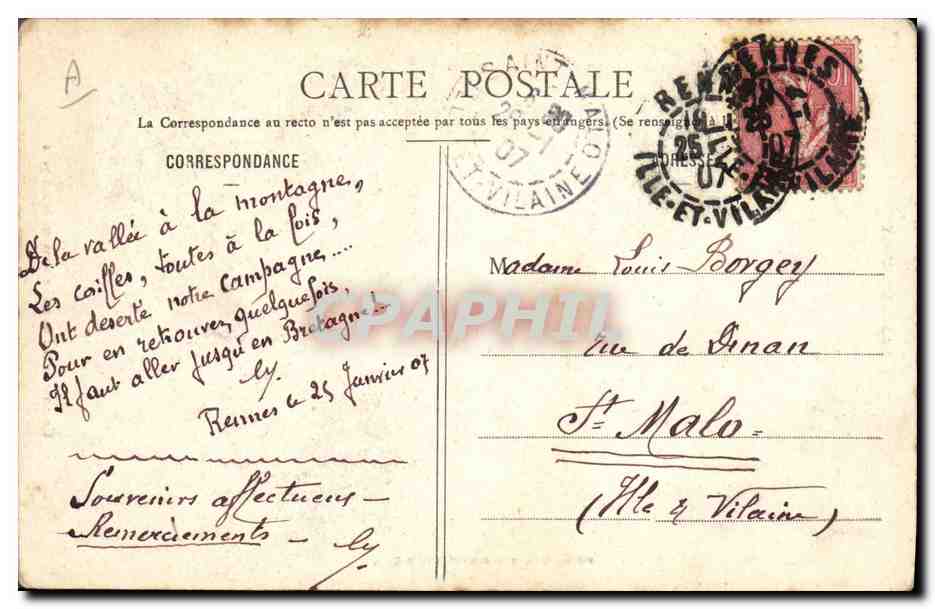 A
CARTE POSTALE
La Correspondance au recto n'est pas acceptée par tous les pays étrangers. (Se renseigner à la
CORRESPONDANCE
ADRESSE
De la vallée à la montagne,
Les coiffes, toutes à la fois,
Ont déserté notre campagne...
Pour en retrouver, quelquefois,
Il faut aller jusqu'en Bretagne!
Ly.
Rennes le 25 Janvier 07
Souvenirs affectueux –
Remerciements – Ly.
Madame Louis Borgey
rue de Dinan
St Malo =
(Ille & Vilaine)
RENNES
25
07
ILLE-ET-VILAINE
RENNES
25
07
ILLE-ET-VILAINE
SAINT MALO
07
ET-VILAINE
10
CPAPHIL